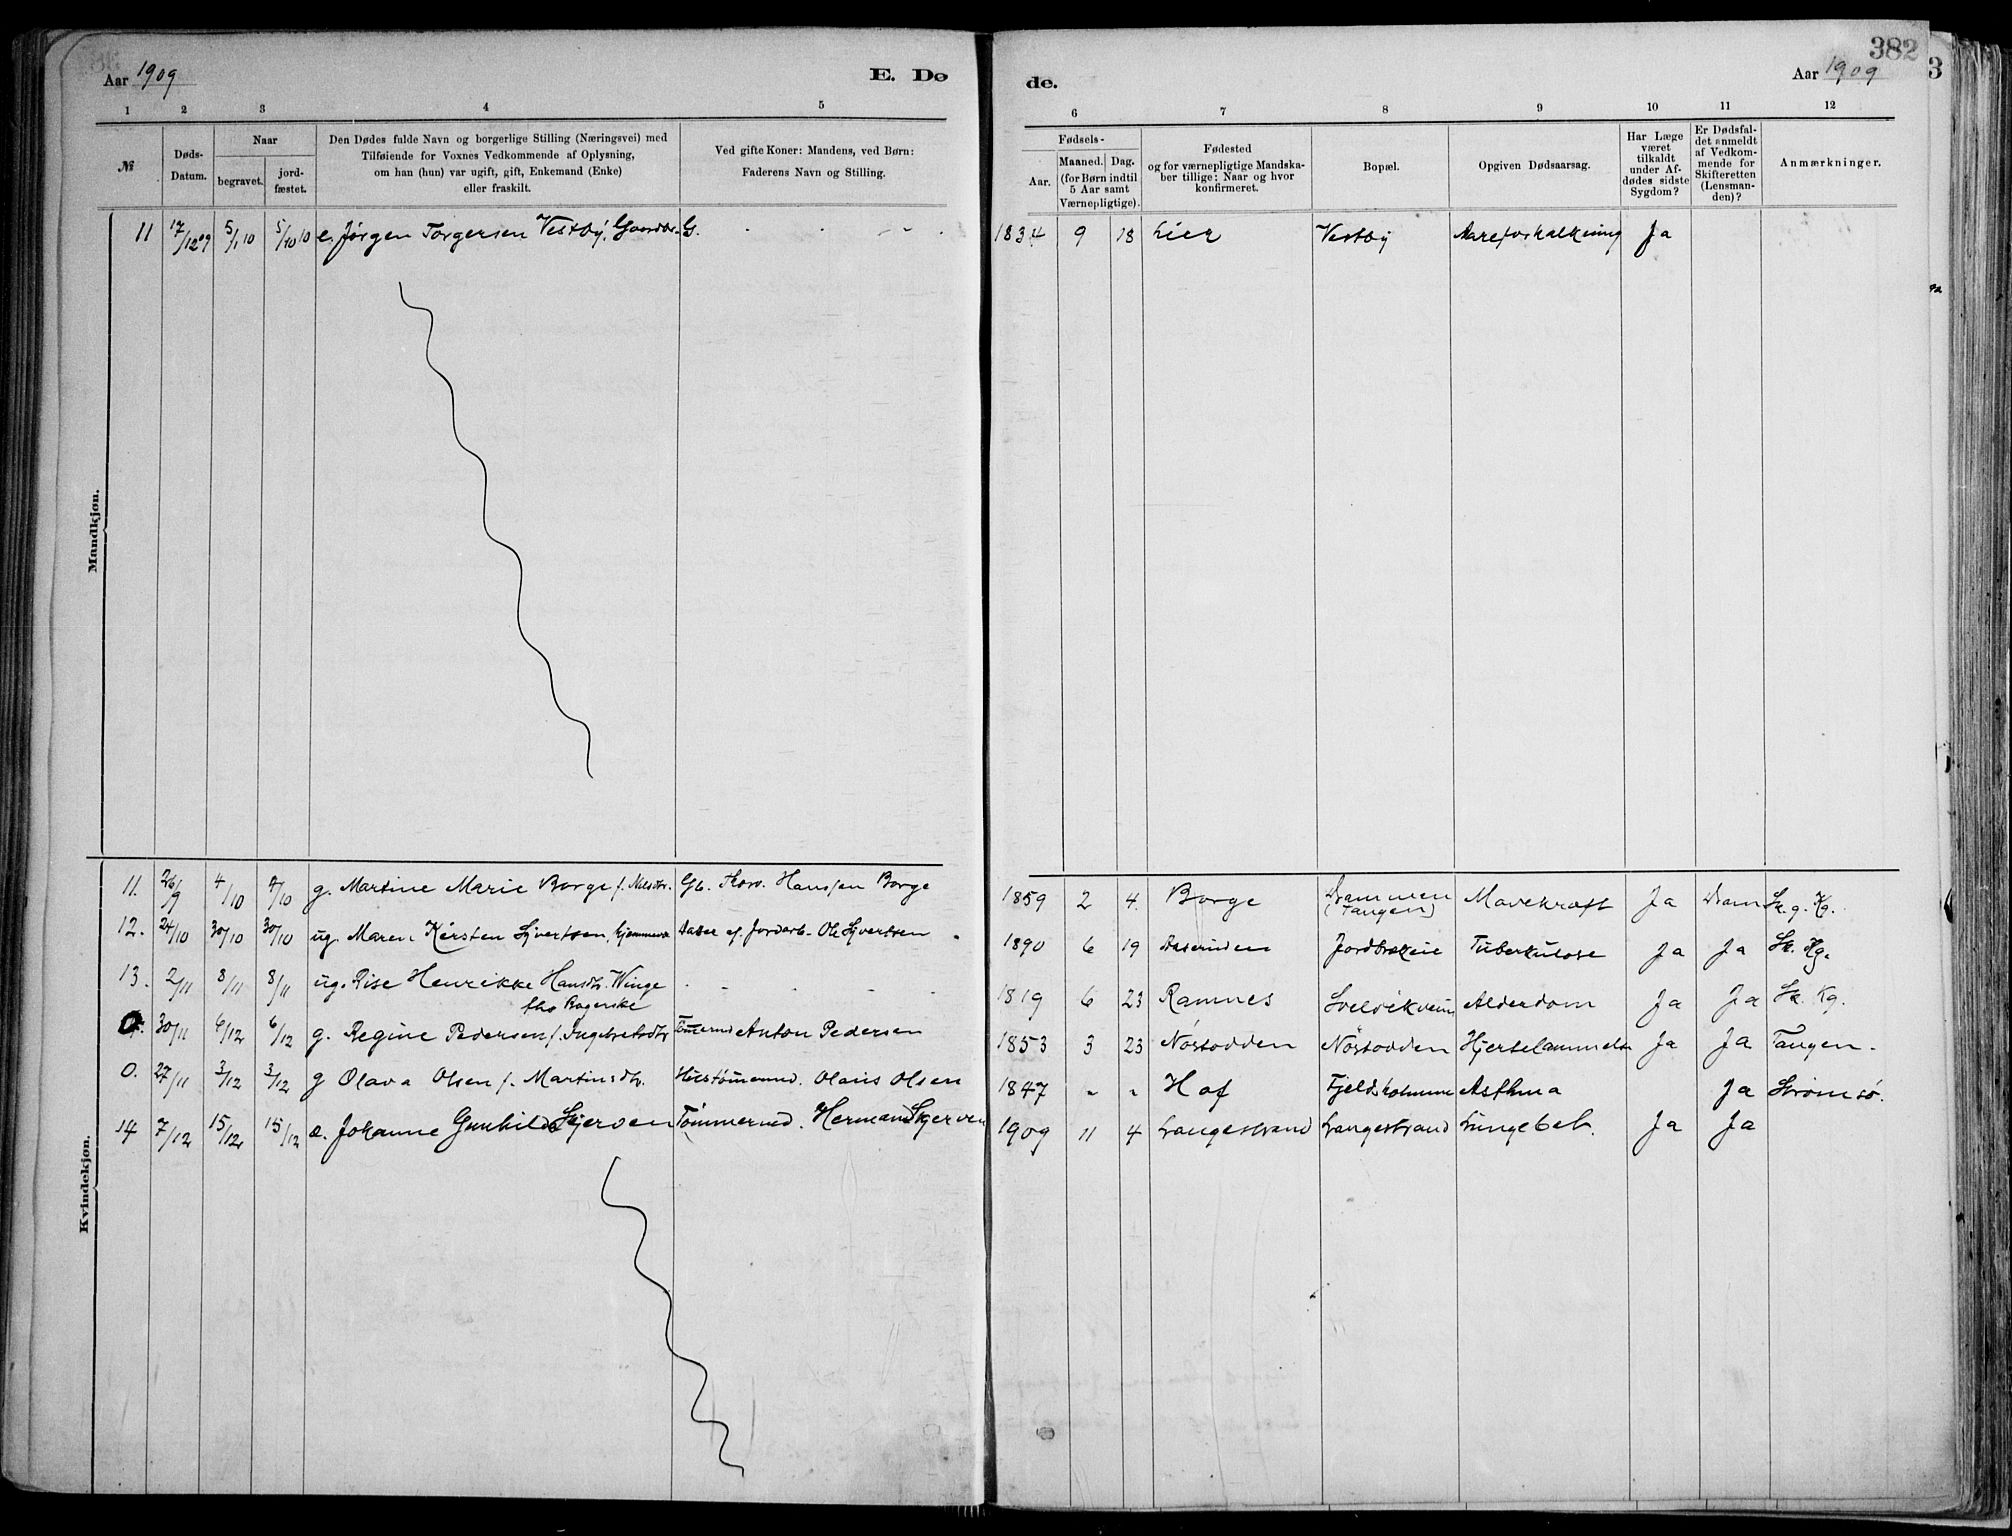 382
3
Aar 1909
E. Dø
de.
Aar 1909
1 2 3 4 5
6 7 8 9 10 11 12
№
Døds-
Datum.
Naar
begravet.
jord-
fæstet.
Den Dødes fulde Navn og borgerlige Stilling (Næringsvei) med
Tilføiende for Voxnes Vedkommende af Oplysning,
om han (hun) var ugift, gift, Enkemand (Enke)
eller fraskilt.
Ved gifte Koner: Mandens, ved Børn:
Faderens Navn og Stilling.
Fødsels-
Aar.
Maaned. Dag.
(for Børn indtil
5 Aar samt
Værnepligtige).
Fødested
og for værnepligtige Mandska-
ber tillige: Naar og hvor
konfirmeret.
Bopæl.
Opgiven Dødsaarsag.
Har Læge
været
tilkaldt
under Af-
dødes sidste
Sygdom?
Er Dødsfal-
det anmeldt
af Vedkom-
mende for
Skifteretten
(Lensman-
den)?
Anmærkninger.
Mandkjøn.
11 17/12 09 5/1 10 5/10 10 e. Jørgen Torgersen Vestby, Gaardbr. 1834 9 18 Lier Vestby Aareforkalkning Ja
Kvindekjøn.
11. 26/9 4/10 4/10 g. Martine Marie Borge f. Nilsdtr. Gb. Thorv. Hanssen Borge 1859 2 4. Borge Drammen (Tangen) Mavekræft Ja Dram Sk. g. Kg.
12. 24/10 30/10 30/10 ug. Maren Kirsten Sjvertsen, hjemmev. Dater af Jordarb. Ole Sjvertsen 1890 6 19 Aaserinden Jordbrækeie Tuberkulose Ja Ja Sk. Kg.
13. 2/11 8/11 8/11 ug. Rise Henrikke Hansdtr. Winge 1819 6 23 Ramnes Svelvikveien Alderdom Ja Ja Sk. Kg.
fhv. Bagerske
0. 30/11 6/12 6/12 g. Regine Pedersen f. Ingebretsdtr Tømermd Anton Pedersen 1853 3 23 Nøstodden Nøstodden Hjertelammelse Ja Ja Tangen.
0. 27/11 3/12 3/12 g Olava Olsen f. Martinsdtr. Olaus Olsen 1847 - - Hof Asthma Ja Strømsø.
14 7/12 15/12 15/12 æ. Johanne Gunhild Skjerven Tømmermd. Herman Skjerven 1909 11 4 Langestrand Langestrand Lungebet. Ja Ja